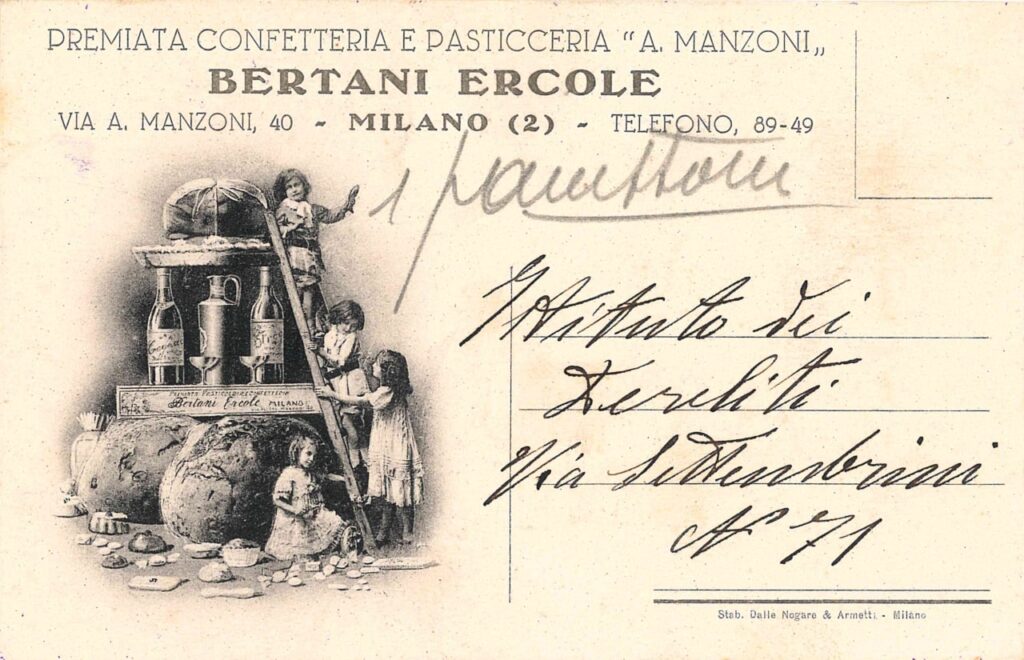 PREMIATA CONFETTERIA E PASTICCERIA "A. MANZONI„
BERTANI ERCOLE
VIA A. MANZONI, 40 - MILANO (2) - TELEFONO, 89-49
1 panettoni
Istituto dei
Dereliti
Via Settembrini
N° 71
PREMIATA PASTICCERIA E CONFETTERIA
Bertani Ercole MILANO
Stab. Dalle Nogare & Armetti - Milano